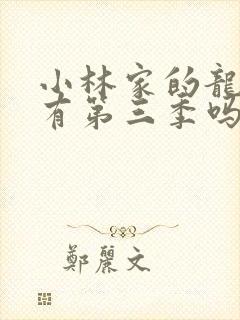 小林家的龍
有第三季吗
鄭麗文